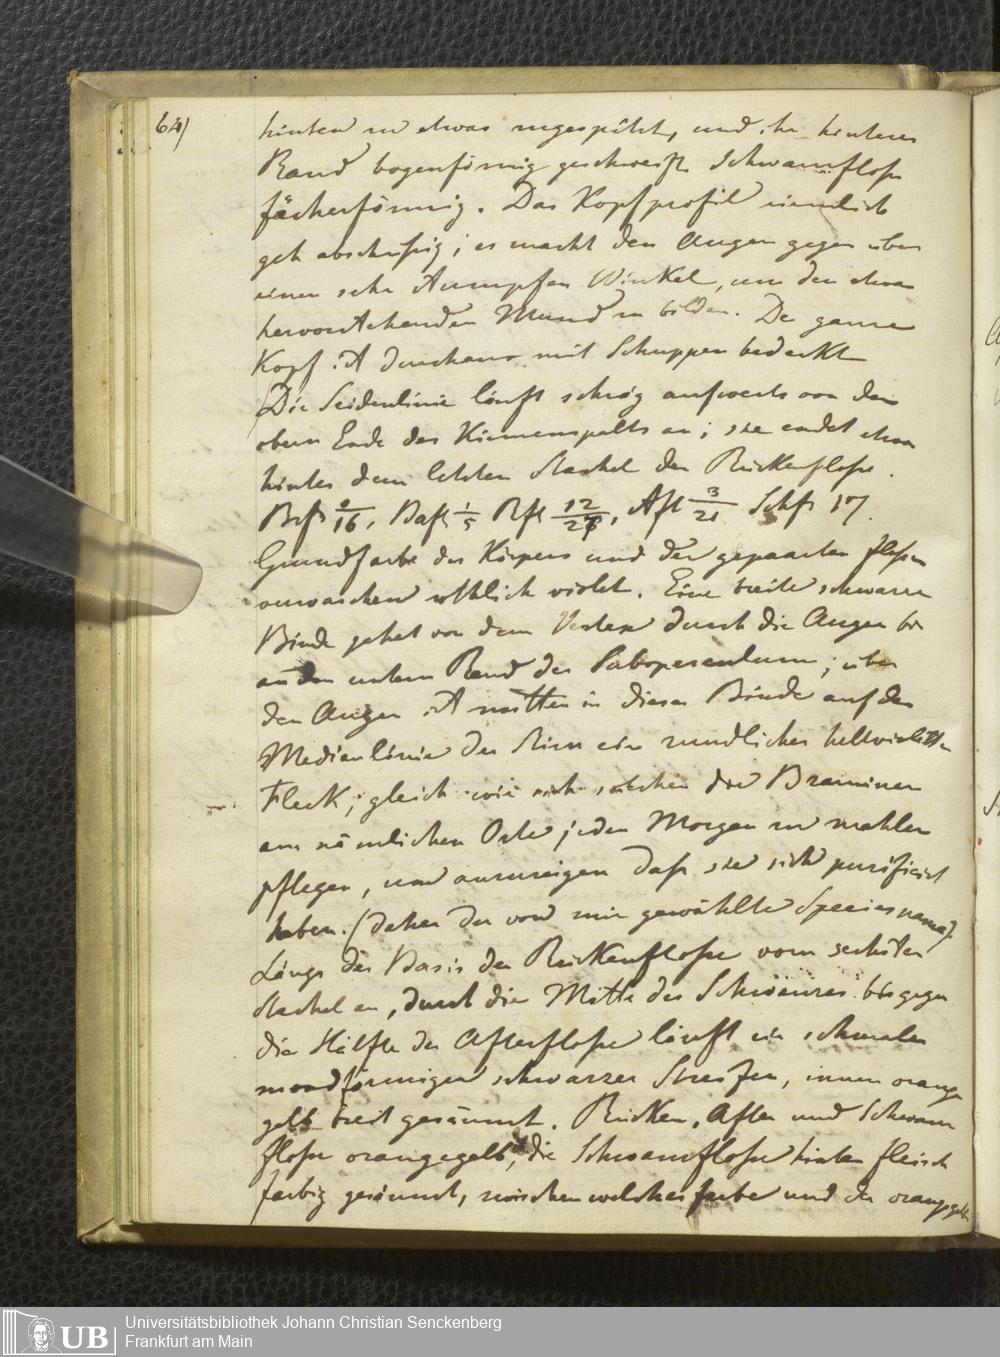 64)
hinten zu etwas zugespitzt, und ihr hinterer
Rand bogenförmig geschweift. Schwanzflosse
fächerförmig. Das Kopfprofil ziemlich
geh abschüssig; es macht den Augen gegen über
einen sehr stumpfen Winkel, um den etwas
hervorstehenden Mund zu bilden. Der ganze
Kopf ist durchaus mit Schuppen bedeckt
Die Seidenlinie läuft schräg aufwerts von dem
obern Ende des Kiemenspalts an; sie endet etwas
hinter dem letzten Stachel der Rückenflosse.
Brfl 2/16, Bafl 1/5 Rfl 12/23, Afl 3/21 Schfl 17.
Grundfarbe des Körpers und der gepaarten Flossen
verwaschen rothlich violet. Eine breite schwarze
Binde gehet von dem Vertex durch die Augen bis
an den untern Rand des Suboperculum; über
den Augen ist mitten in dieser Binde auf der
Medianlinie der Stirn ein rundlicher hellvioletter
Fleck, gleich wie sich solchen die Braminen
am nämlichen Orte jeden Morgen zu mahlen
pflegen, um anzuzeigen dass sie sich purificirt
haben. (daher der von mir gewählte Speciesname).
Längs der Basis der Rückenflosse vom sechsten
Stachel an, durch die Mitte des Schwanzes bis gegen
die Hälfte der Afterflosse läuft ein schmaler
mondförmiger schwarzer Streifen, innen orange
gelb breit gesäumt. Rücken, After und Schwanz
flosse orangegelb, die Schwanzflosse hinten fleisch
farbig gesäumt, zwischen welcher farbe und der orangegelben
Universitätsbibliothek Johann Christian Senckenberg
Frankfurt am Main
UB